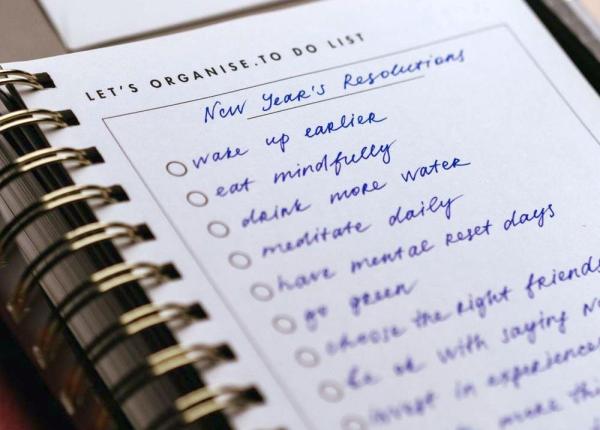 LET'S ORGANISE.TO DO LIST
New Year's Resolutions
wake up earlier
eat mindfully
drink more water
meditate daily
have mental reset days
go green
choose the right friends
be ok with saying No
invest in experiences
more thi